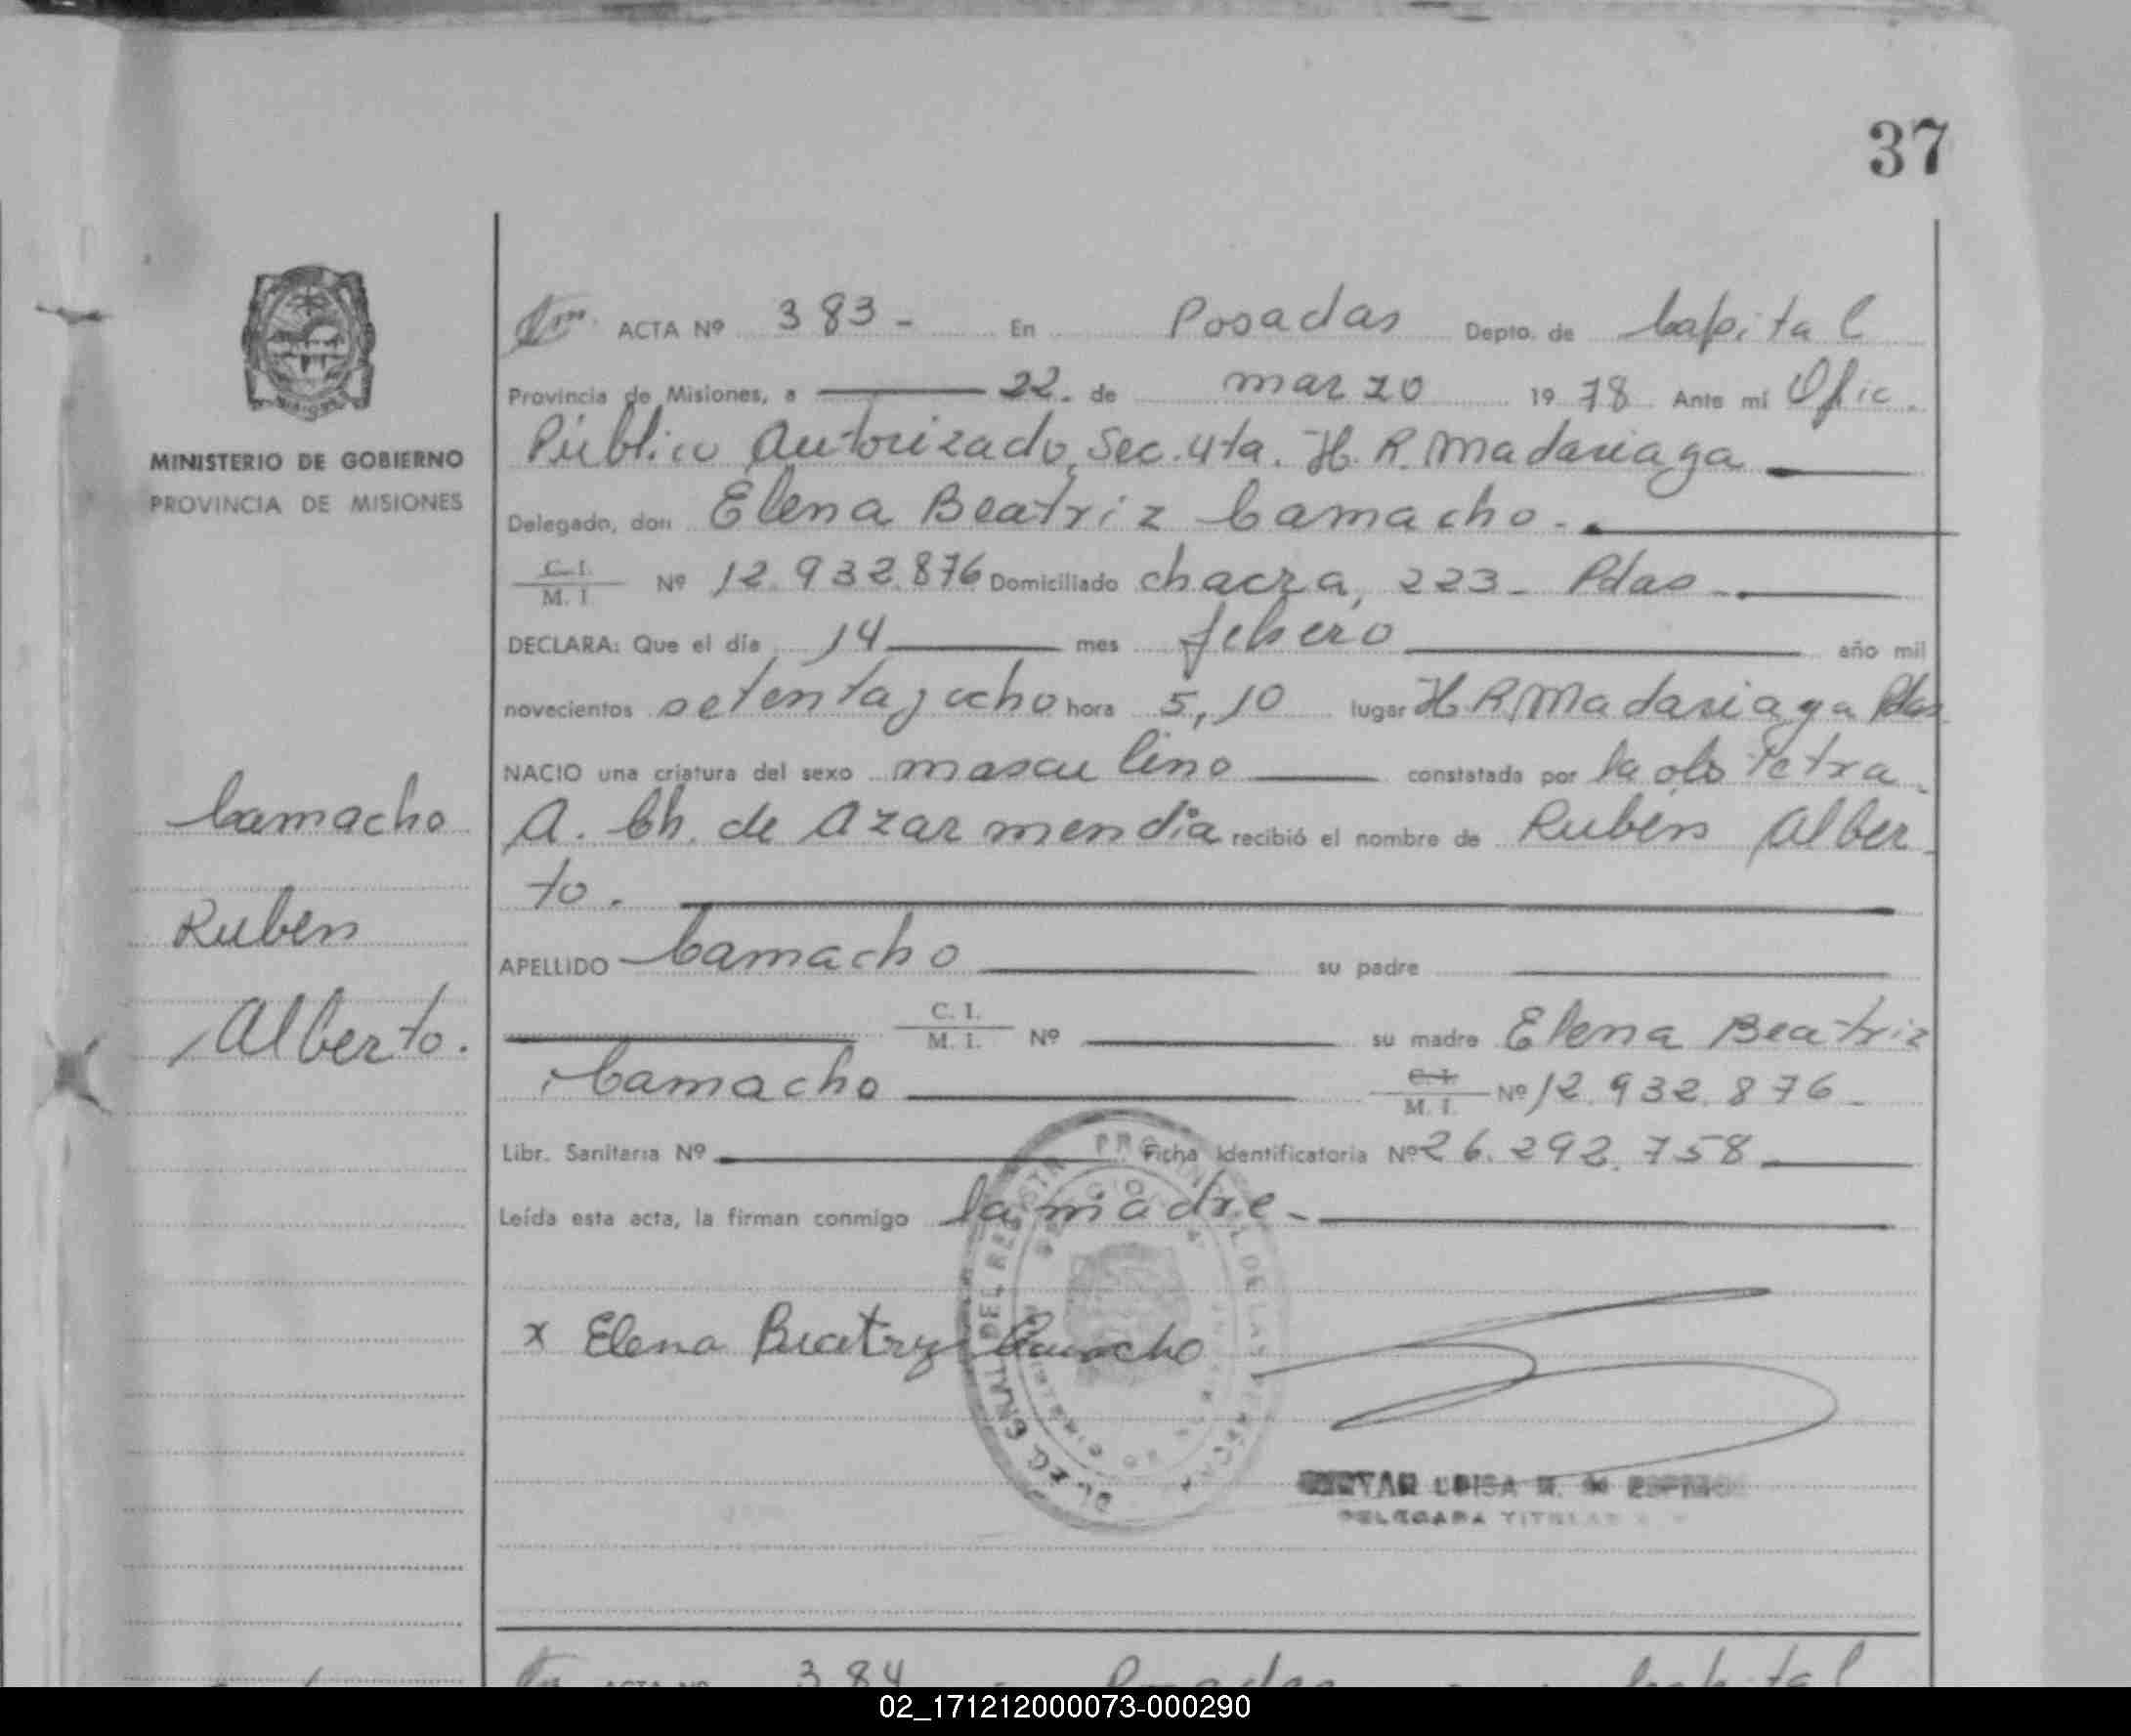 37
ACTA Nº 383 - En Posadas Depto. de Capital
Provincia de Misiones, a 22. de marzo 1978 Ante mi Ofic.
Público Autorizado, Sec. 4ta. H. R. Madariaga
MINISTERIO DE GOBIERNO
PROVINCIA DE MISIONES
Delegado, don Elena Beatriz Camacho.
C. I.
M. I. Nº 12.932.876 Domiciliado chacra, 223- Pdas
DECLARA: Que el día 14 mes febrero año mil
novecientos setenta y ocho hora 5,10 lugar H R Madariaga Pdas
NACIO una criatura del sexo masculino constatada por la obstetra
A. Ch. de Azarmendia recibió el nombre de Rubén Alber
to.
Camacho
Ruben
Alberto.
APELLIDO Camacho su padre
C. I.
M. I. Nº su madre Elena Beatriz
Camacho
C. I.
M. I. Nº 12.932.876-
Libr. Sanitaria Nº Ficha Identificatoria Nº 26.292.758
Leída esta acta, la firman conmigo la madre-
x Elena Beatriz Camacho
LUISA
DELEGADA TITULAR
ACTA Nº 384 Posadas Capital
02_171212000073-000290